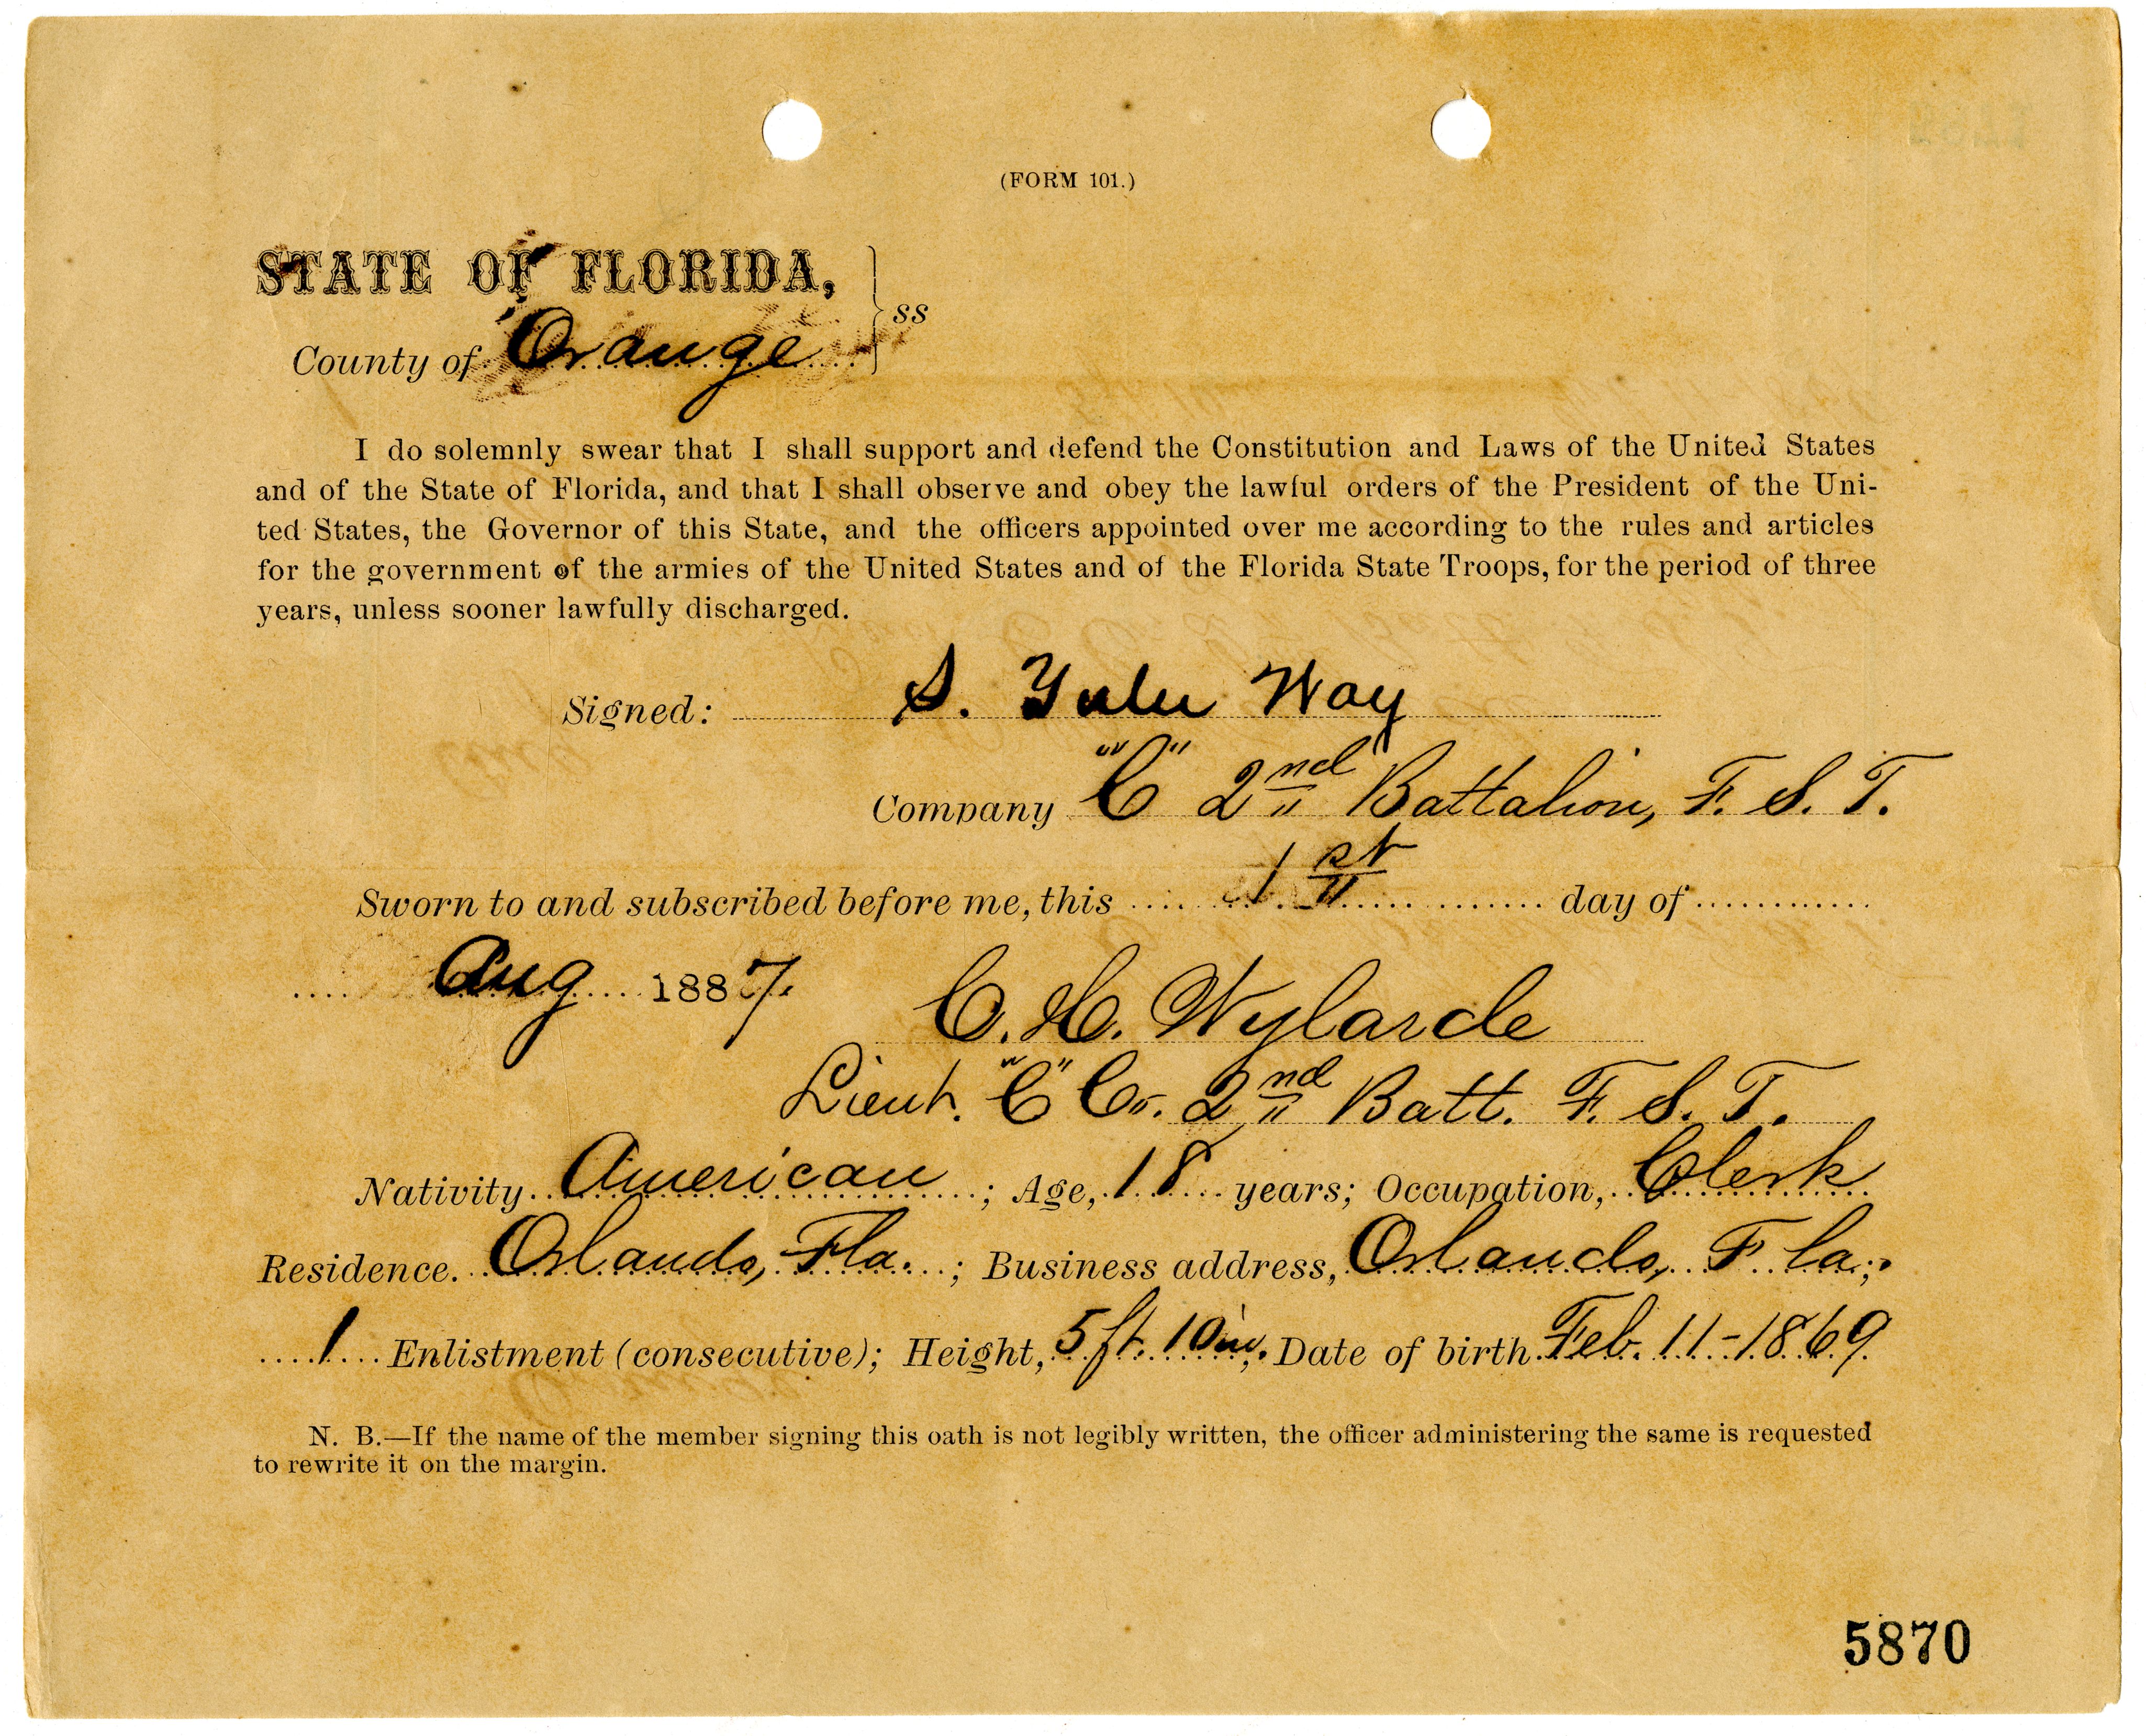 (FORM 101.)
STATE OF FLORIDA,
ss
County of Orange
I do solemnly swear that I shall support and defend the Constitution and Laws of the United States
and of the State of Florida, and that I shall observe and obey the lawful orders of the President of the Uni-
ted States, the Governor of this State, and the officers appointed over me according to the rules and articles
for the government of the armies of the United States and of the Florida State Troops, for the period of three
years, unless sooner lawfully discharged.
Signed: S. Yulee Way
Company "C" 2nd Battalion, F. S. T.
Sworn to and subscribed before me, this 1st day of
Aug 1887.
C. H. Wylarde
Lieut. "C" Co. 2nd Batt. F. S. T.
Nativity American; Age, 18 years; Occupation, Clerk
Residence. Orlando, Fla.; Business address, Orlando, Fla.;
1 Enlistment (consecutive); Height, 5 ft. 10 in.; Date of birth Feb. 11-1869
N. B.—If the name of the member signing this oath is not legibly written, the officer administering the same is requested
to rewrite it on the margin.
5870